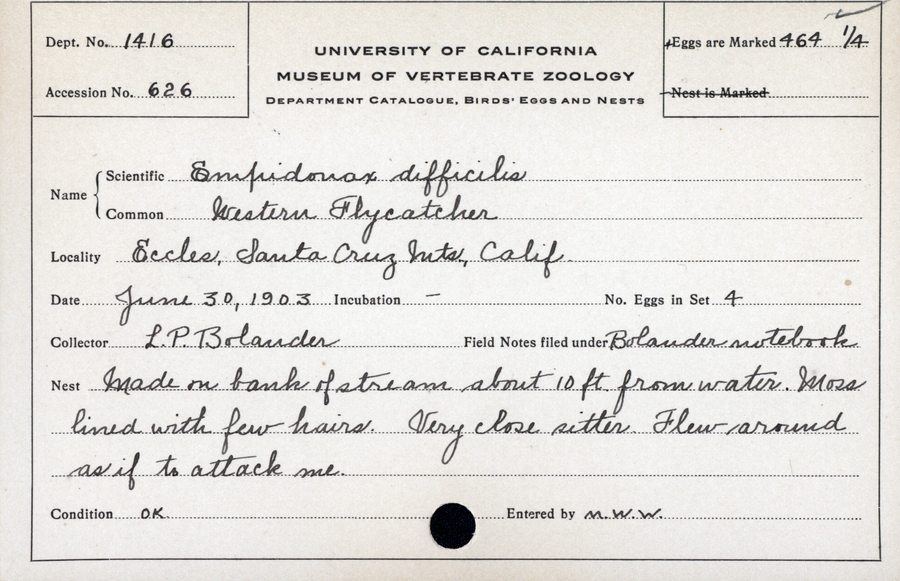 Dept. No. 1416
Accession No. 626
UNIVERSITY OF CALIFORNIA
MUSEUM OF VERTEBRATE ZOOLOGY
DEPARTMENT CATALOGUE, BIRDS' EGGS AND NESTS
Eggs are Marked 464 1/4
Nest is Marked
Name
Scientific Empidonax difficilis
Common Western Flycatcher
Locality Eccles, Santa Cruz Mts, Calif.
Date June 30, 1903 Incubation — No. Eggs in Set 4
Collector L.P. Bolander Field Notes filed under Bolander notebook
Nest Made on bank of stream about 10 ft. from water. Moss
lined with few hairs. Very close sitter. Flew around
as if to attack me.
Condition OK Entered by M.W.W.